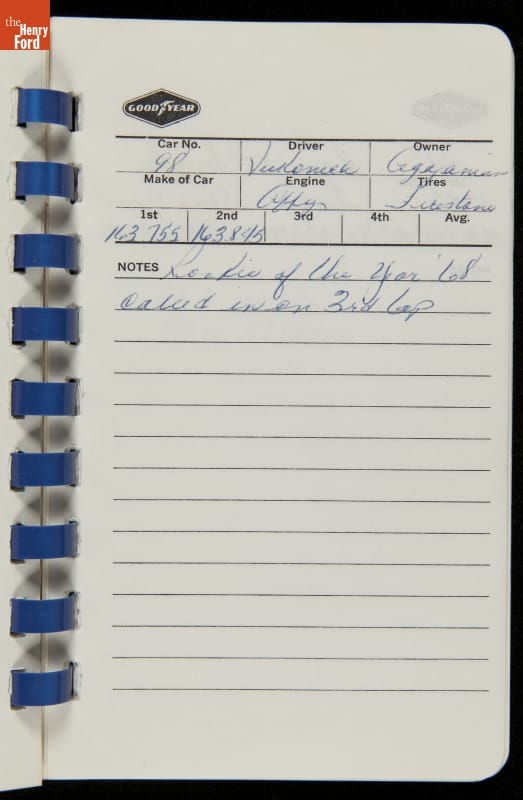 the
Henry
Ford
GOODYEAR
Car No. Driver Owner
98 Vukovich Agajanian
Make of Car Engine Tires
Offy Firestone
1st 2nd 3rd 4th Avg.
163.755 163.845
NOTES Rookie of the Year '68
called in on 3rd lap